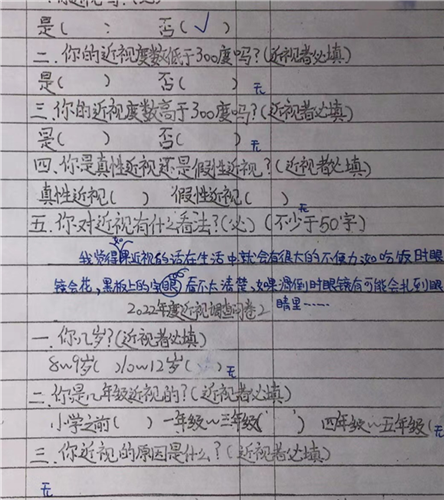 是（　　）　否（√）
二、你的近视度数低于300度吗？（近视者必填）
是（　　）　否（　　）无
三、你的近视度数高于300度吗？（近视者必填）
是（　　）　否（　　）无
四、你是真性近视还是假性近视？（近视者必填）
真性近视（　　）　假性近视（　　）无
五、你对近视有什么看法？（必）（不少于50字）
我觉得如果近视的话在生活中就会有很大的不便力如吃饭时眼
镜会花，黑板上的字看不太清楚，如果滑倒时眼镜有可能会扎到眼
睛里……
2022年度近视调查问卷2
一、你几岁？（近视者必填）
8~9岁（　）10~12岁（　）无
二、你是几年级近视的？（近视者必填）
小学之前（　）一年级~三年级（　）四年级~五年级（无
三、你近视的原因是什么？（近视者必填）
无